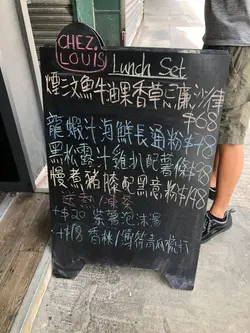 CHEZ LOUIS
Lunch Set
煙三文魚牛油果香草忌廉沙律
$68
龍蝦汁海鮮長通粉 $78
黑松露汁雞扒配薯條 $78
慢煮豬膝配黑意粉 $148
送熱/凍茶
+$20 紫薯泡沫湯
+$18 香桃/